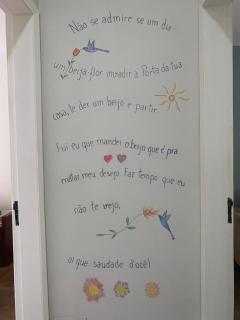 Não se admire se um dia
um beija-flor invadir a Porta da tua
casa, te der um beijo e partir.
Fui eu que mandei o beijo que é pra
matar meu desejo. Faz tempo que eu
não te vejo,
ai que saudade d'ocê!